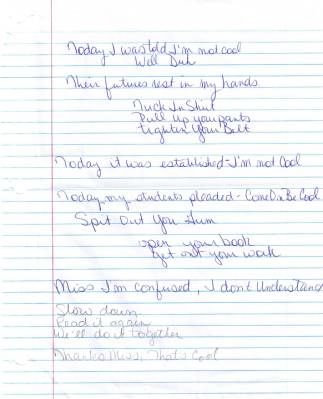 Today I was told I'm not cool
Well Duh
Their futures rest in my hands
Tuck In Shirt
Pull Up your pants
tighten Your Belt
Today it was established - I'm not Cool
Today my students pleaded - Come On Be Cool
Spit Out You Gum
open your book
Get out your work
Miss I'm confused, I dont Understand
Slow down
Read it again
We'll do it together
Thanks Miss, That's Cool